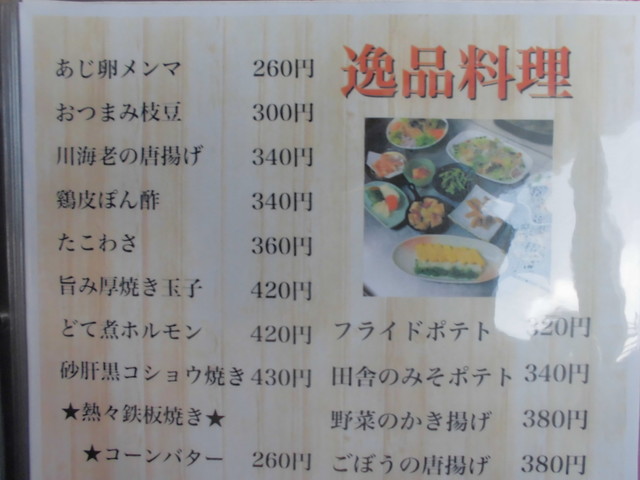 逸品料理
あじ卵メンマ 260円
おつまみ枝豆 300円
川海老の唐揚げ 340円
鶏皮ぽん酢 340円
たこわさ 360円
旨み厚焼き玉子 420円
どて煮ホルモン 420円
砂肝黒コショウ焼き 430円
★熱々鉄板焼き★
★コーンバター 260円
フライドポテト 320円
田舎のみそポテト 340円
野菜のかき揚げ 380円
ごぼうの唐揚げ 380円